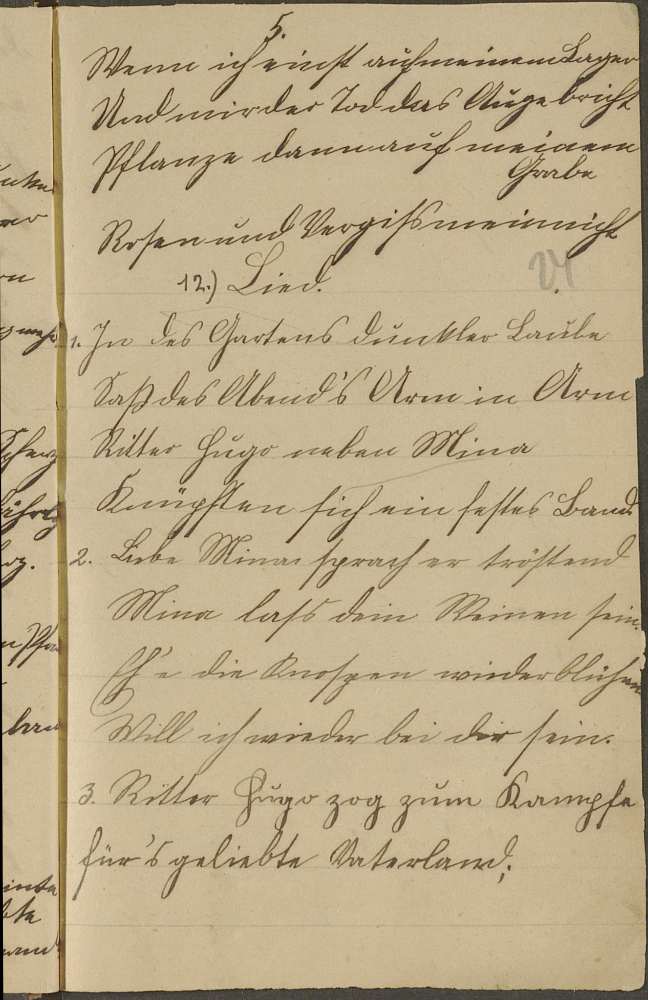 5.
Wenn ich einst auf meinem Lager
Und mir der Tod das Auge bricht
Pflanze dann auf meinem
Grabe
Rosen und Vergißmeinnicht
12.) Lied.
24
1. In des Gartens dunkler Laube
Saß des Abend's Arm in Arm
Ritter Hugo neben Mina
Knüpften sich ein festes Band
2. Liebe Mina sprach er tröstend
Mina lass dein Weinen sein.
Eh'e die Knospen wieder blühen
Will ich wieder bei dir sein.
3. Ritter Hugo zog zum Kampfe
für's geliebte Vaterland;